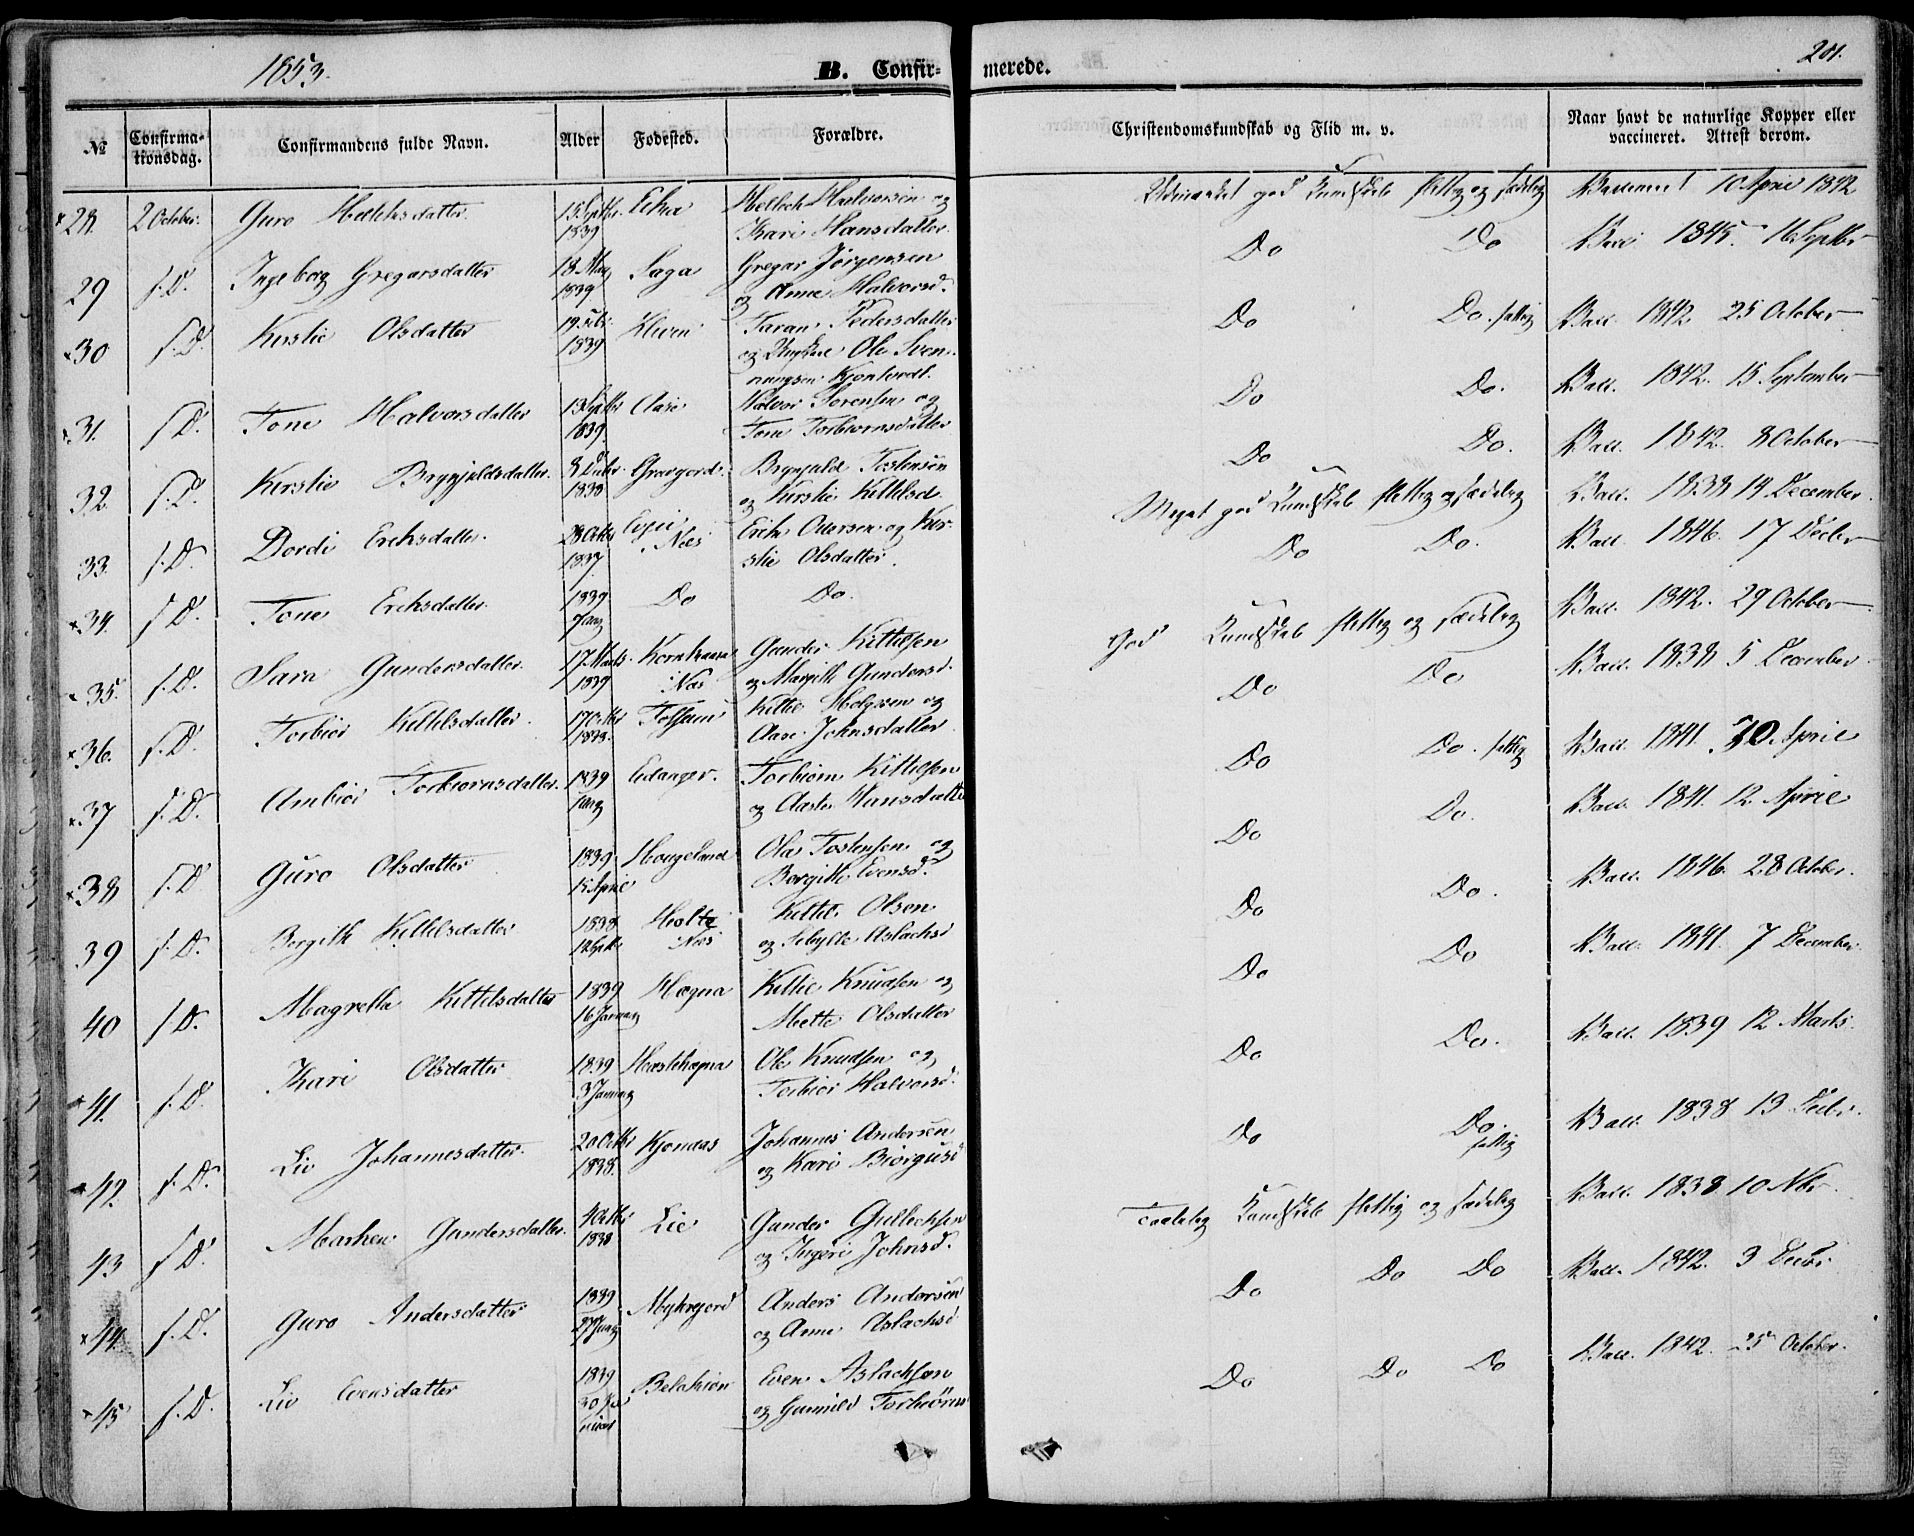 1853.
B. Confir-
merede.
201.
№
Confirma-
tionsdag.
Confirmandens fulde Navn.
Alder
Fødested.
Forældre.
Christendomskundskab og Flid m. v.
Naar havt de naturlige Kopper eller
vaccineret. Attest derom.
28. 2 October. Guro 15 Septbr. 1839 Halvorsen og
Kari Hansdatter.
god Kundskab flittig og sædelig 10 April 1842
29 s.D. Ingeborg Gregarsdatter 18 Mai 1839 Saga Gregar Jørgensen
og Anne Halvorsd.
Do Do Vacc. 1845. 16 Septbr
30 s.D. Kirstie Olsdatter 19 1839 Taran Pedersdatter
og Ole Sven-
nungsen
Do Do. flittig Vacc. 1842 25 October
31. s.D. Tone Halvorsdatter 13 Septbr 1839. Aase Halvor Sørensen og
Tone Torbiørnsdatter
Do Do. Vacc. 1842. 15 September
32. s.D. Kirstie Brynjuldsdatter. 8 1838 Gravgord. Brynjuld Tostensøn
og Kirstie Kittelsd.
Do Do. Vacc. 1842. 8 October
33. s.D. Dordi Erichsdatter. 28 Octbr 1837. Næs Erich Olaesen og Kir-
stie Olsdatter.
Meget god Kundskab flittig og sædelig Vacc. 1838 14 December.
34. s.D. Tone Erichsdatter. 1839 Do Do.
Do Do. Vacc. 1846. 17 Decbr
35. s.D. Sara Gundersdatter. 17 Marts. 1839 Næs Gunder Kittilsen
og Margith Gundersd.
God Kundskab flittig og sædelig Vacc. 1842. 29 October
36. s.D. Torbiør Kittelsdatter. 17 Octbr 1838. Folsum Kittil Helgesen og
Aase Johnsdatter.
Do Do Vacc. 1838 5 December.
37 s.D. Ambiør Torbiørnsdatter. 1839 Eidanger. Torbiørn Kittilsen
og Aaste Hansdatter
Do Do. flittig Vacc. 1841. 30 April
38 s.D. Guro Olsdatter 1839 15 April Hougeland Ole Tostensen og
Borgith Evensd.
Do Do. Vacc. 1841. 12 April
39 s.D. Bergith Kittelsdatter 1838 18 Septbr Holte Næs Kittil Olsen
og Sibylle Aslachsd
Do Do. Vacc. 1846. 28 October.
40 s.D. Magretha Kittelsdatter 1839 16 Januar Hægna Kittil Knudsen og
Mette Olsdatter
Do Do Vacc. 1841. 7 December.
41. s.D. Kari Olsdatter 1839 3 Januar Ole Knudsen og
Torbiør Halvorsd.
Do Do. Vacc. 1839 12 Marts.
42. s.D. Liv Johannesdatter. 20 Octbr 1838. Kjonaas Johannes Andersen
og Kari
Do Do. flittig Vacc. 1838 13 Decbr.
43 s.D. Marken Gundersdatter. 4 Octbr 1838 Lie Gunder Gullechsen
og Ingeri Johnsd.
Taalelig Kundskab flittig og sædelig Vacc. 1838 10 Nbr.
44. s.D. Guro Andersdatter 1839 27 Myhregord Anders Andersøn
og Anne Aslachsd
Do Do Do Vacc. 1842. 3 Decbr
45 s.D. Liv Evensdatter 1839 30 Even Aslachsen
og Gunnild Torbiørns
Do Do Do Vacc. 1842. 25 October.